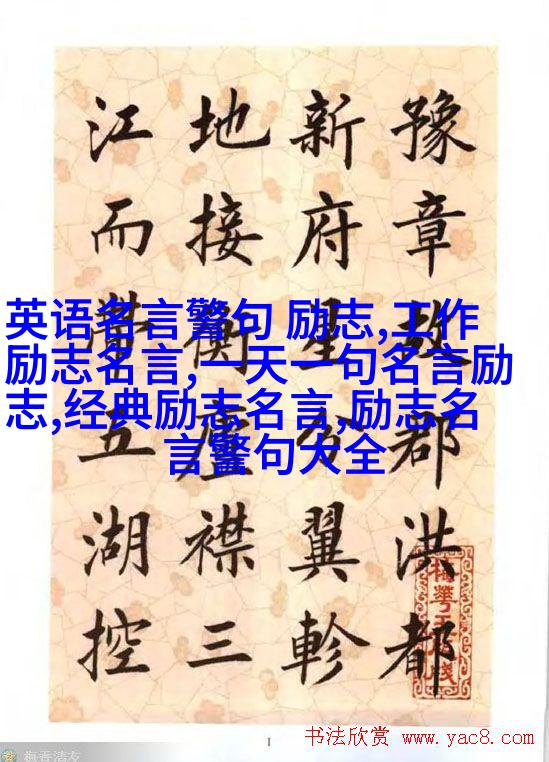 豫章故郡洪都
新府星分翼軫
地接衡廬襟三
江而帶五湖控
英语名言警句 励志,工作
励志名言,一天一句名言励
志,经典励志名言,励志名
言警句大全
1
书法欣赏 www.yac8.com
梅香清友